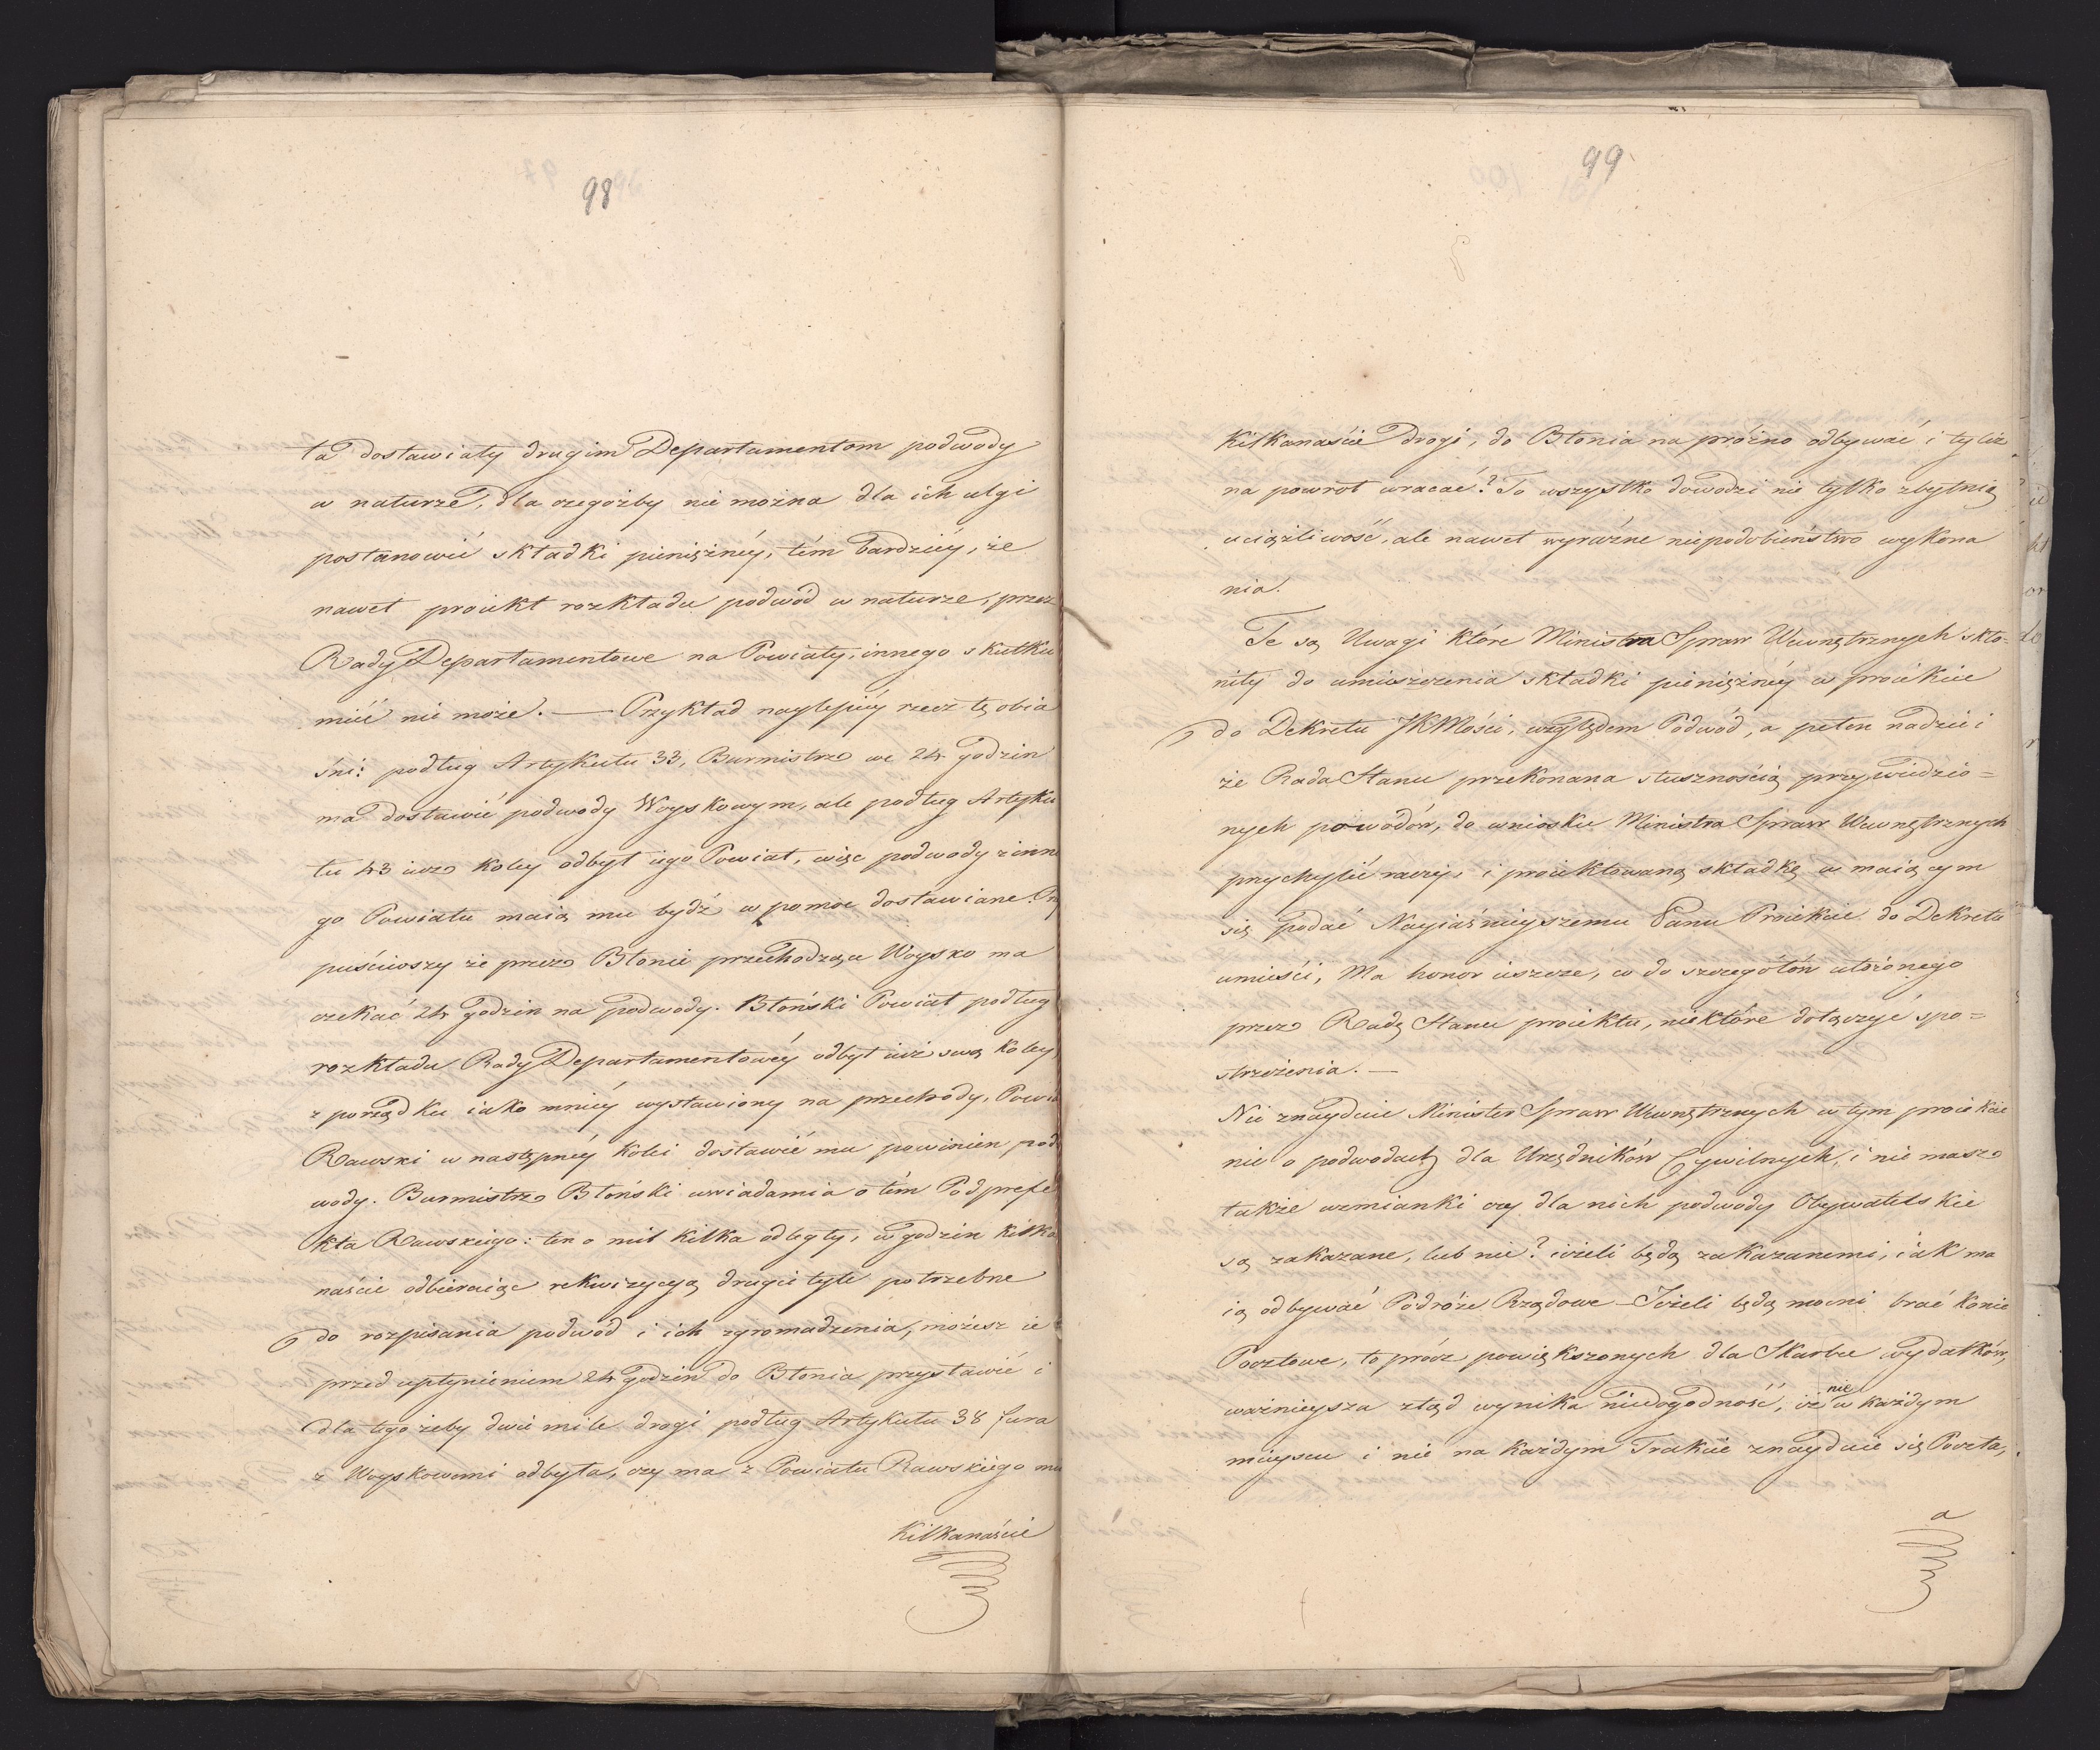 98
ta dostawiały drugim Departamentom podwody
w naturze, dla czegożby nie można dla ich ulgi
postanowić składki pieniężnéy, tém bardziéy, że
nawet proiekt rozkładu podwód w naturze, przez
Rady Departamentowe na Powiaty, innego skutku
mieć nie może. — Przykład naylepiéy rzecz tę obia
śni: podług Artykułu 33, Burmistrz we 24 godzin
ma dostawić podwody Woyskowym, ale podług Artyku
łu 43 iuż koley odbył iego Powiat, więc podwody z inne
go Powiatu maią mu bydź w pomoc dostawiane. Przy
puściwszy że przez Błonie przechodzące Woysko ma
czekać 24 godzin na podwody. Błoński Powiat podług
rozkładu Rady Departamentowéy odbył iuż swą koley
z porządku iako mniéy wystawiony na przechody, Powiat
Rawski w następnéy kolei dostawić mu powinien pod
wody. Burmistrz Błoński uwiadamia o tém Podprefe
kta Rawskiego: ten o mil kilka odległy, w godzin kilka
naście odbieraiąc rekwizycyą drugie tyle potrzebne
do rozpisania podwód i ich zgromadzenia, możesz ie
przed upłynieniem 24 godzin do Błonia przystawić i
dla tego żeby dwie mile drogi podług Artykułu 38 fura
z Woyskowemi odbyła, czy ma z Powiatu Rawskiego mil
Kilkanaście
99
Kilkanaście drogi, do Błonia na próżno odbywać i tyleż
na powrot wracać? To wszystko dowodzi nie tylko zbytnią
uciążliwość, ale nawet wyraźne niepodobieństwo wykona
nia.
Te są Uwagi które Ministra Spraw Wewnętrznych skło-
niły do umieszczenia składki pieniężnéy w proiekcie
do Dekretu JKMości, względem Podwód, a pełen nadziei
że Rada Stanu przekonana słusznością przywiedzio=
nych powodów, do wniosku Ministra Spraw Wewnętrznych
przychylić raczy i proiektowaną składkę w maiącym
się podać Nayiaśnieyszemu Panu Proiekcie do Dekretu
umieści, Ma honor ieszcze, co do szczegółów ułożonego
przez Radę Stanu proiektu, niektóre dołączyć spo=
strzeżenia. —
Nie znayduie Minister Spraw Wewnętrznych w tym proiekcie
nic o podwodach dla Urzędników Cywilnych, i nie masz
także wzmianki czy dla nich podwody Obywatelskie
są zakazane, lub nie? ieżeli będą zakazanemi, iak ma
ią odbywać Podróże Rządowe — Jeżeli będą mocni brać konie
Pocztowe, to prócz powiększonych dla Skarbu wydatków,
ważnieysza ztąd wynika niedogodność, iż nie w każdym
mieyscu i nie na każdym Trakcie znayduie się Poczta,
a